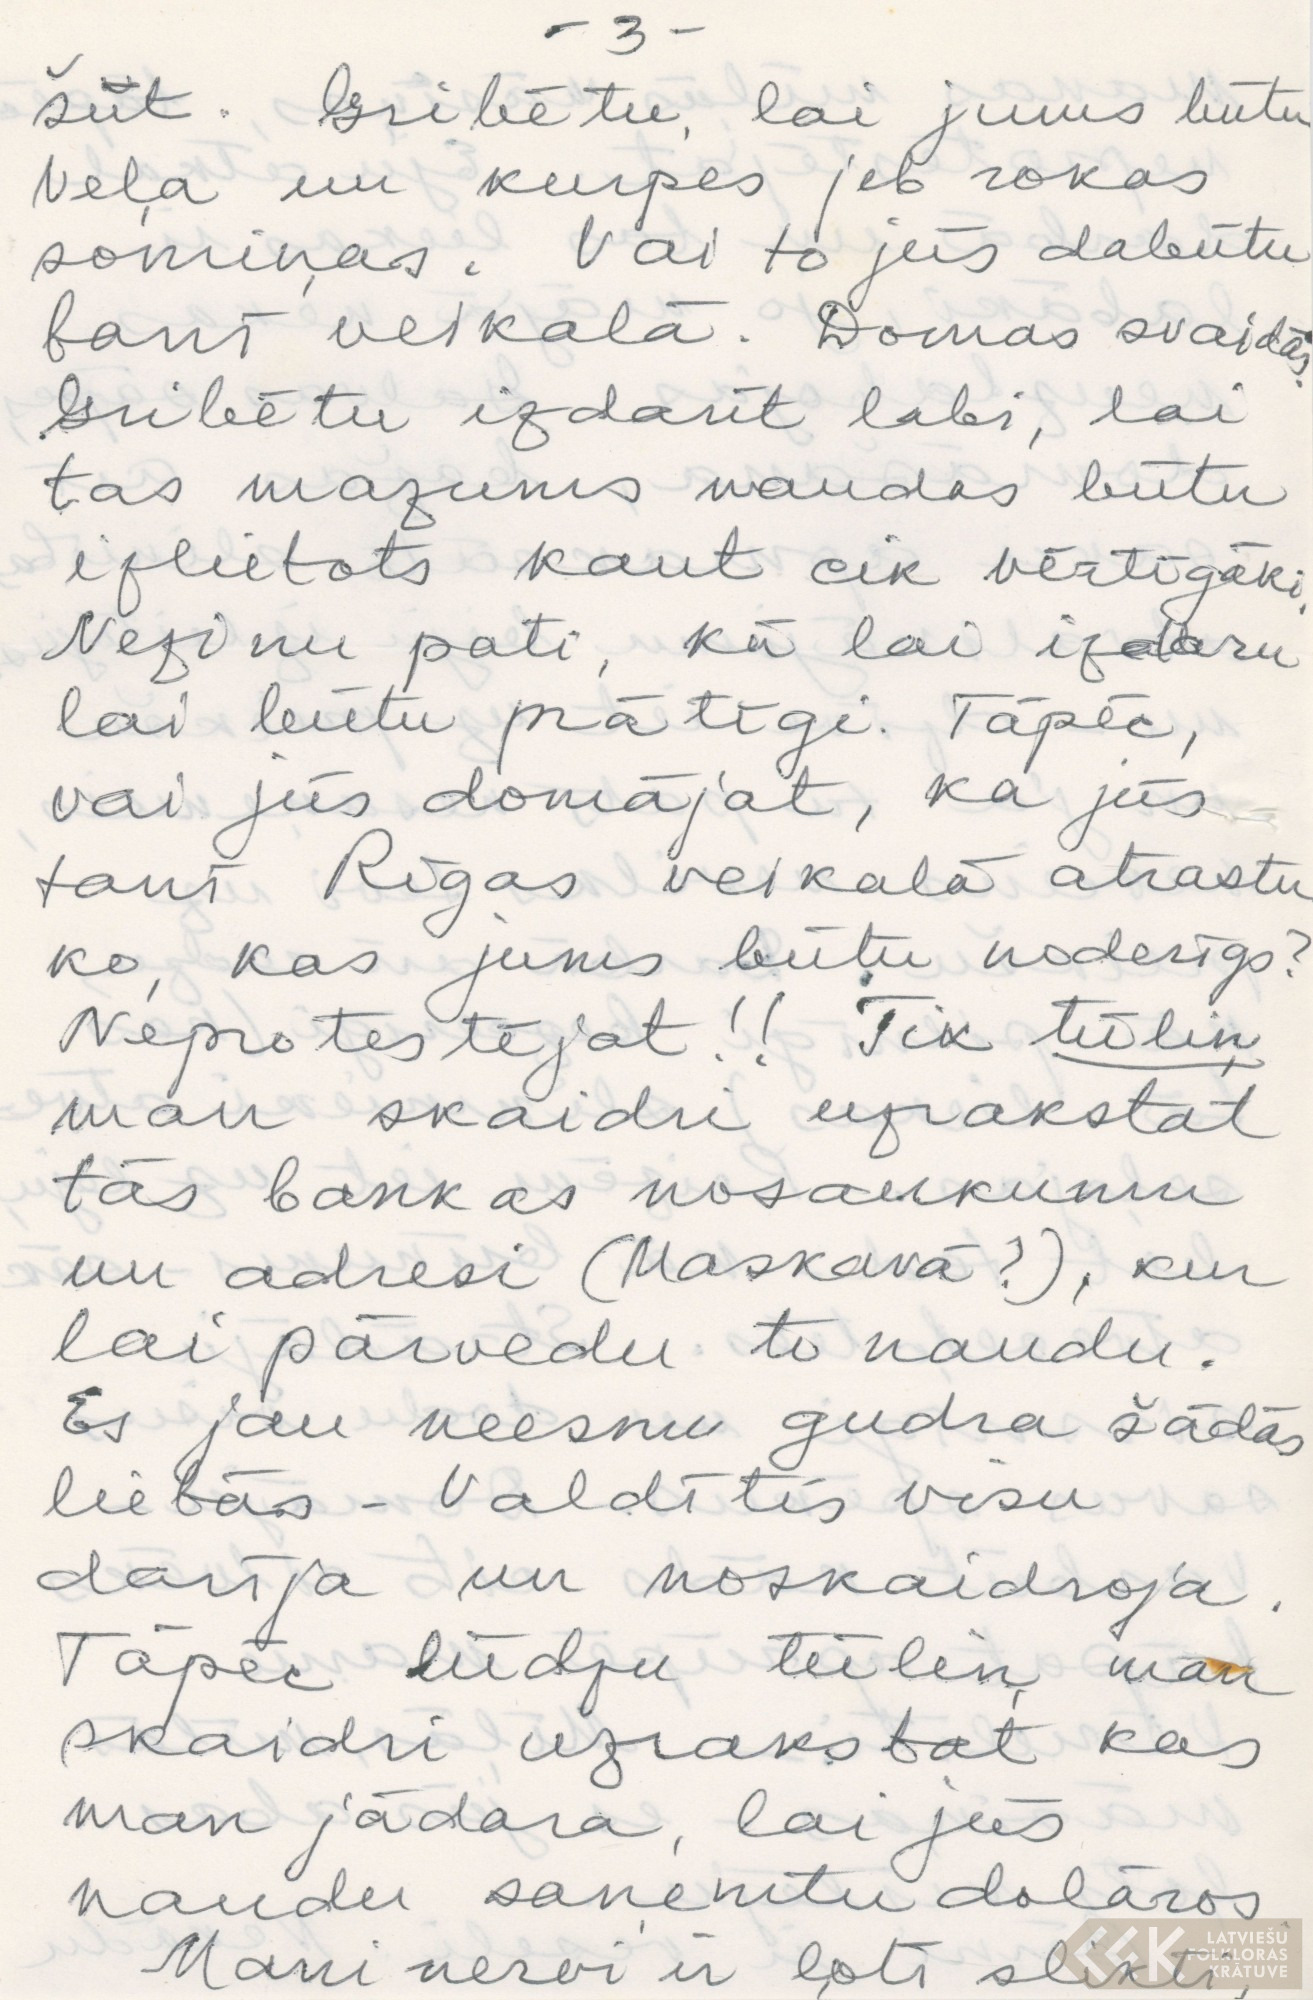 - 3 -
šūt. Gribētu, lai jums būtu
veļa un kurpes jeb rokas
somiņas. Vai to jūs dabūtu
tanī veikalā. Domas svaidās.
Gribētu izdarīt labi, lai
tas mazums naudas būtu
izlietots kaut cik vērtīgāki,
Nezinu pati, kā lai izdaru
lai būtu prātīgi. Tāpēc,
vai jūs domājat, ka jūs
tanī Rīgas veikalā atrastu
ko, kas jums būtu noderīgs?
Neprotestējat!! Tik tūliņ
man skaidri uzrakstat
tās bankas nosaukumu
un adresi (Maskavā?), kur
lai pārvedu to naudu.
Es jau neesmu gudra šādās
lietās - Valdītis visu
darīja un noskaidroja.
Tāpēc lūdzu tūliņ man
skaidri uzrakstat kas
man jādara, lai jūs
naudu saņemtu dolāros
Mani nervi ir ļoti slikti,
LATVIEŠU
FOLKLORAS
KRĀTUVE